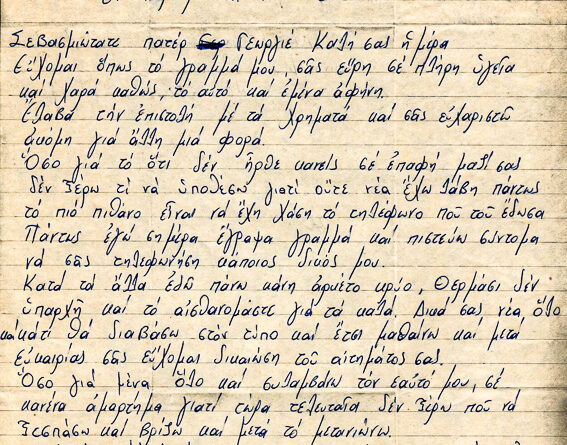 Σεβασμιώτατε πατέρ Γεωργιέ Καλή σας ἡ μέρα
Εὔχομαι ὅπως τό γράμμά μου, σᾶς εὕρη σέ πλήρη ὑγεῖα
καί χαρά καθώς, τό αὐτό καί ἐμένα ἀφήνη.
Ἔλαβα τήν ἐπιστολή μέ τά χρήματά καί σᾶς εὐχαριστῶ
ἀκόμη γιά ἄλλη μιά φορά.
Ὅσο γιά τό ὅτι δέν ἦρθε κανείς σέ ἐπαφή μαζί σας
δέν ξέρω τί νά ὑποθέσω γιατί οὔτε νέα ἔχω λάβη πάντως
τό πιό πιθάνο εἶναι νά ἔχη χάση τό τηλέφωνο πού τοῦ ἔδωσα
Πάντως ἐγώ σήμέρα ἔγραψα γράμμα καί πιστεύω σύντομα
νά σᾶς τηλεφωνήση κάποιος δικός μου.
Κατά τά ἄλλα ἐδῶ πάνω κάνη ἀρκετό κρύο, θερμάσι δέν
ὑπαρχῆ καί τό αἰσθανομάστε γιά τά καλά. Δικά σας νέα, ὅλο
καί κάτι θά διαβάσω στόν τύπο καί ἔτσι μαθαίνω καί μετά
εὐκαιρίας σᾶς εὔχομαι δικαιώση τοῦ αἰτημάτος σας.
Ὅσο γιά μένα ὅλο καί συλαμβάνω τόν ἑαυτό μου, σέ
κανένα ἁμαρτημα γιατί τώρα τελευταῖα δέν ξέρω πού νά
ξεσπάσω καί βρίζω καί μετά τό μετανιώνω.